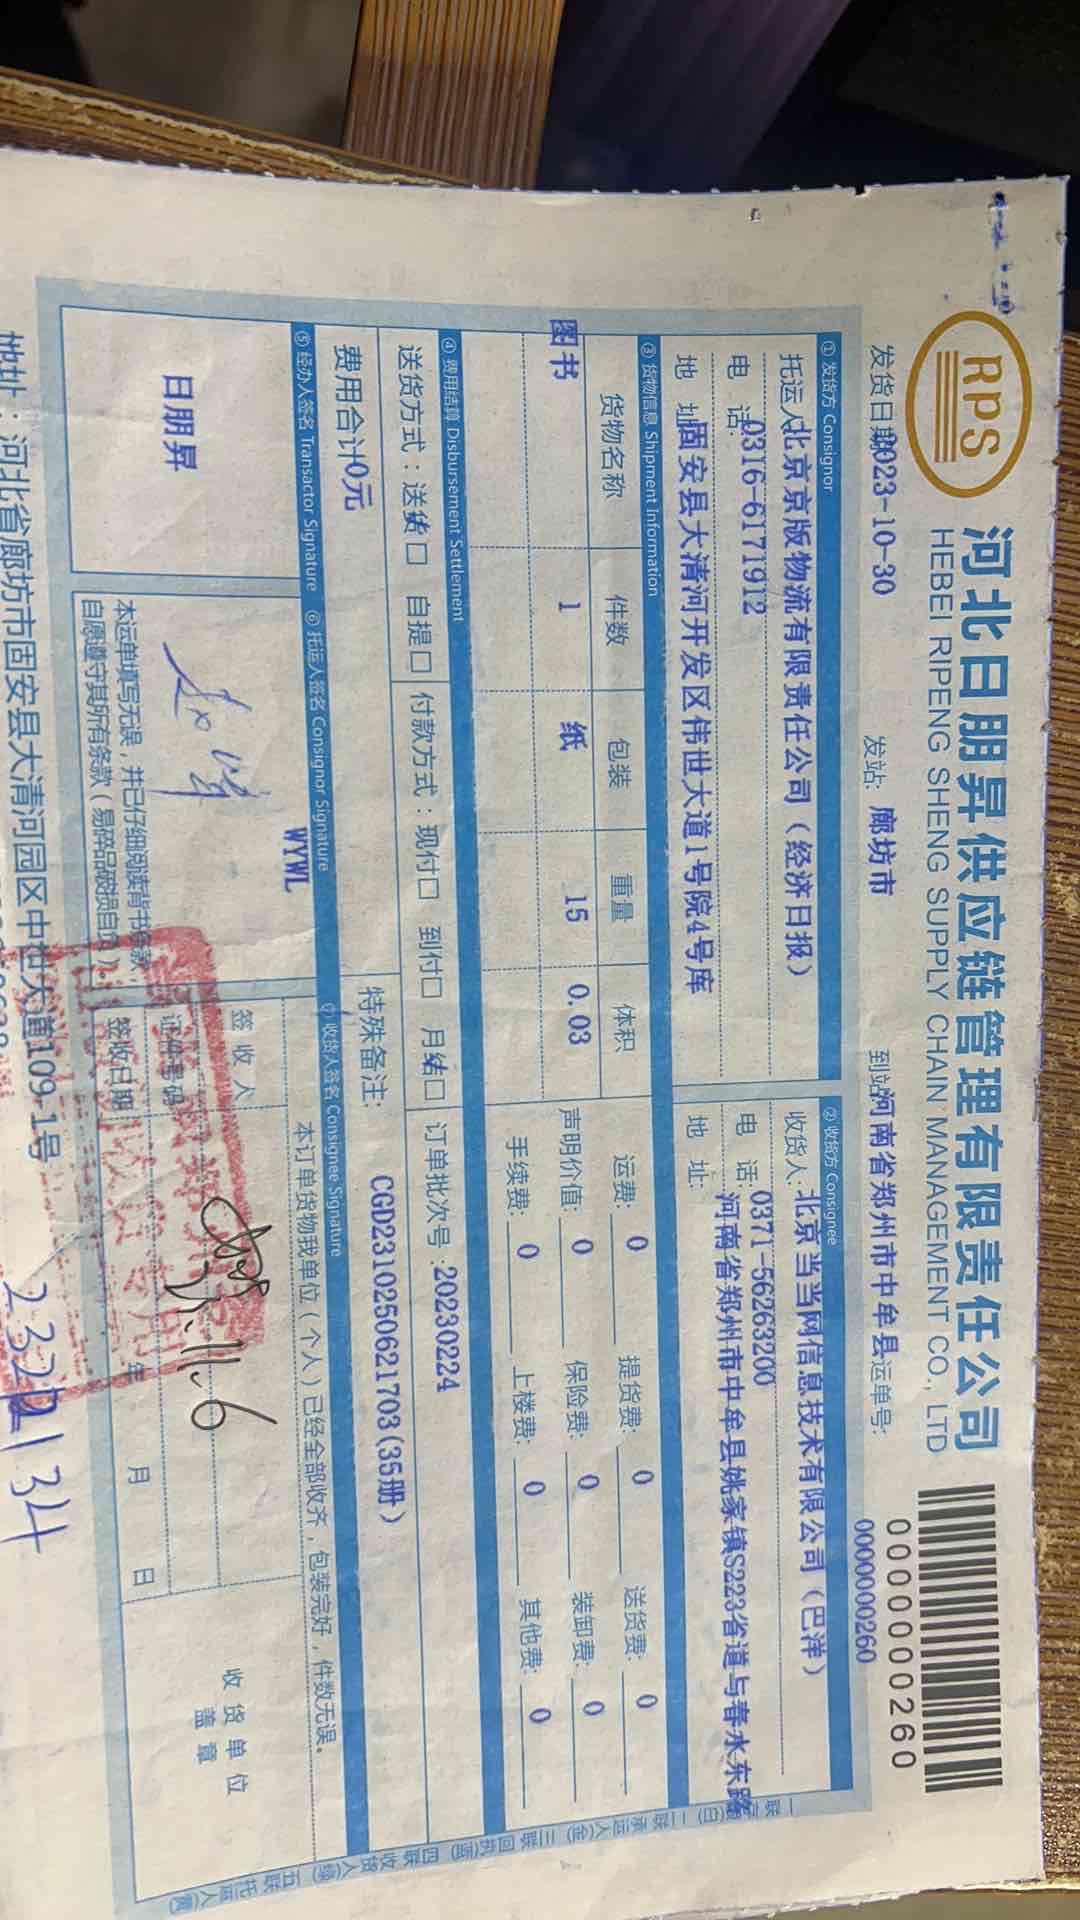 RPS
河北日朋昇供应链管理有限责任公司
HEBEI RIPENG SHENG SUPPLY CHAIN MANAGEMENT CO., LTD
0000000260
发货日期2023-10-30 发站: 廊坊市 到站河南省郑州市中牟县运单号: 0000000260
①发货方 Consignor ②收货方 Consignee
托运人北京京版物流有限责任公司（经济日报） 收货人:北京当当网信息技术有限公司（巴洋）
电 话:0316-6171912 电 话:0371-56263200
地 址固安县大清河开发区伟世大道1号院4号库 地 址:河南省郑州市中牟县姚家镇S223省道与春水东路
③货物信息 Shipment Information
货物名称 件数 包装 重量 体积 运费: 0 提货费: 0 送货费: 0
图书 1 纸 15 0.03 声明价值: 0 保险费: 0 装卸费: 0
手续费: 0 上楼费: 0 其他费: 0
④费用结算 Disbursement Settlement
送货方式：送货□ 自提□ 付款方式：现付□ 到付□ 月结□ 订单批次号:20230224
费用合计0元 特殊备注: CGD2310250621703(35册)
⑤经办人签名 Transactor Signature ⑥托运人签名 Consignor Signature ⑦收货人签名 Consignee Signature
WYWL
日朋昇
本订单货物我单位（个人）已经全部收齐，包装完好，件数无误。
签收人
证件号码
签收日期 年 月 日
11.6
收货单位
盖章
本运单填写无误，并已仔细阅读背书条款，
自愿遵守其所有条款（易碎品破损自负）。
地址：河北省廊坊市固安县大清河园区中世大道109-1号
一联 (白) 二联承运人(金) 三联回执(蓝) 四联收货人(绿) 五联托运人(黄)